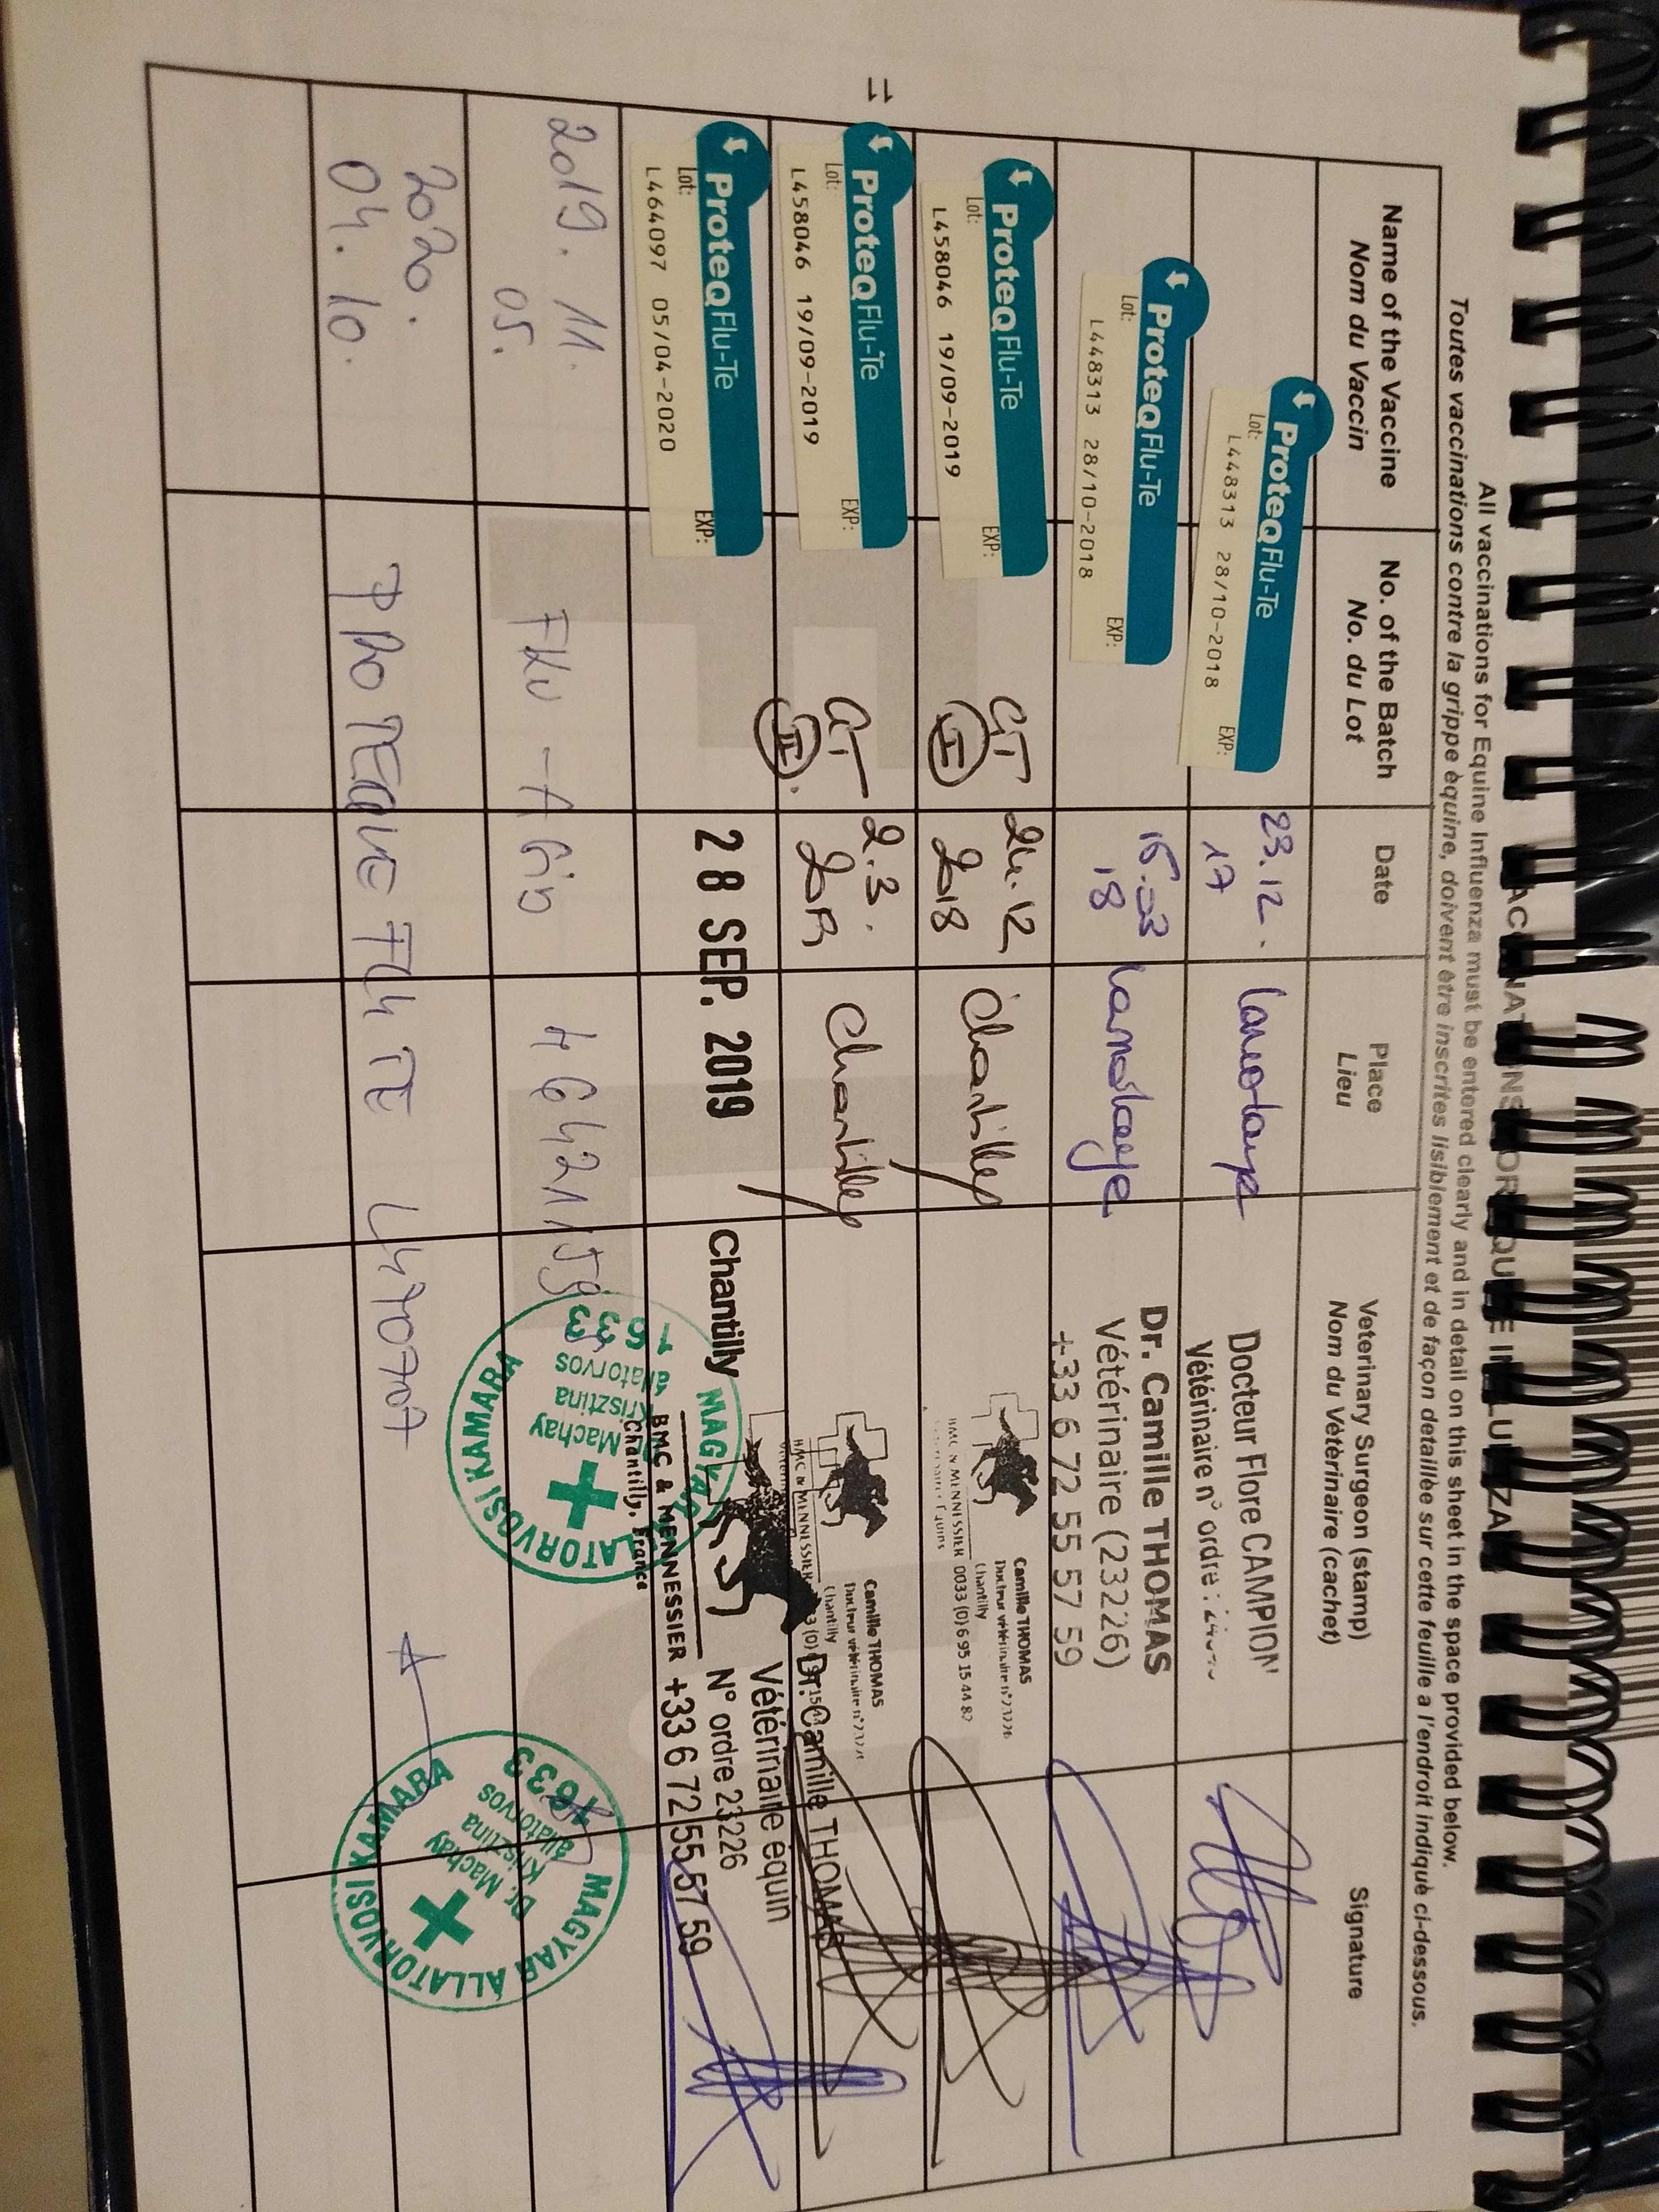 VACCINATIONS FOR EQUINE INFLUENZA
All vaccinations for Equine Influenza must be entered clearly and in detail on this sheet in the space provided below.
Toutes vaccinations contre la grippe équine, doivent être inscrites lisiblement et de façon detaillée sur cette feuille a l'endroit indiqué ci-dessous.
Name of the Vaccine
Nom du Vaccin
No. of the Batch
No. du Lot
Date
Place
Lieu
Veterinary Surgeon (stamp)
Nom du Vétérinaire (cachet)
Signature
ProteqFlu-Te
Lot:
EXP:
L448313 28/10-2018
23.12.
17
Docteur Flore CAMPION
Vétérinaire n° ordre :
ProteqFlu-Te
Lot:
EXP:
L448313 28/10-2018
18
Dr. Camille THOMAS
Vétérinaire (23226)
+33 6 72 55 57 59
ProteqFlu-Te
Lot:
EXP:
L458046 19/09-2019
GT
I
24.12
2018
Chantilly
Camille THOMAS
Docteur vétérinaire n°23226
Chantilly
BMC & MENNESSIER 0033 (0)6 95 15 44 82
ProteqFlu-Te
Lot:
EXP:
L458046 19/09-2019
GT
II.
2.3.
Chantilly
Camille THOMAS
Docteur vétérinaire
Chantilly
BMC & MENNESSIER
ProteqFlu-Te
Lot:
EXP:
L464097 05/04-2020
28 SEP. 2019
Chantilly
Dr. Camille THOMAS
Vétérinaire équin
N° ordre 23226
BMC & MENNESSIER +33 6 72 55 57 59
Chantilly, France
2019. 11.
05.
Machay
Krisztina
állatorvos
MAGYAR ÁLLATORVOSI KAMARA
2020.
04. 10.
L470707
Dr. Machay
Krisztina
állatorvos
4633
MAGYAR ÁLLATORVOSI KAMARA
11